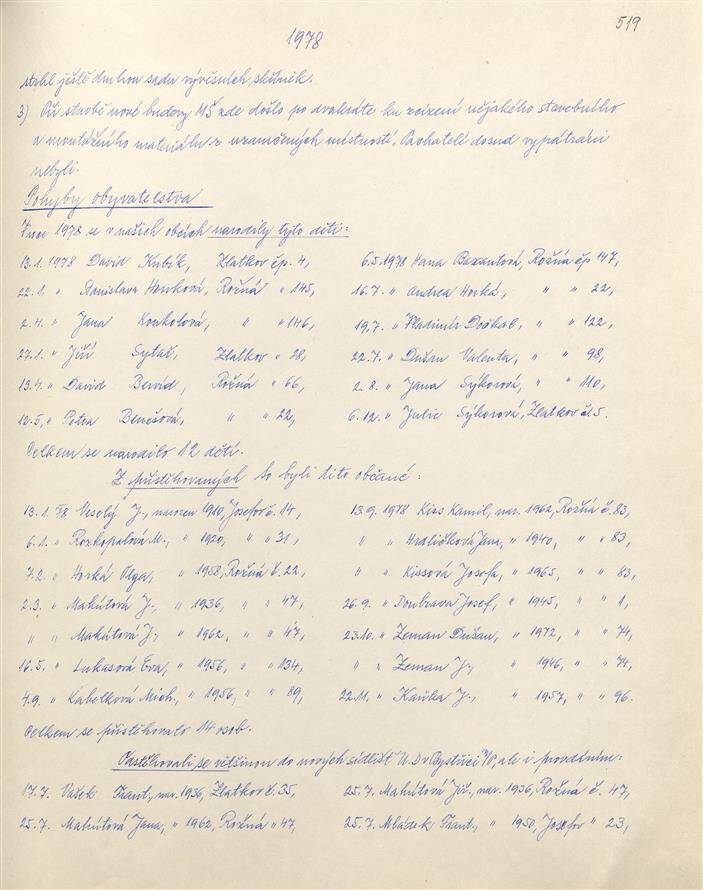 519
1978
stahl ještě druhou sadu vývěsních skříněk.
3) Při stavbě nové budovy MŠ zde došlo po dvakráte ku zcizení nějakého stavebního
a montážního materiálu z uzamčených místností. Pachatelé dosud vypátráni
nebyli.
Pohyby obyvatelstva
V roce 1978 se v našich obcích narodily tyto děti:
13.1. 1978 David Kubík, Zlatkov čp. 4, 6.5.1978 Hana Bezantová, Rožná čp 147,
22.1. " Stanislava Honková, Rožná " 145, 16.7. " Andrea Horká, " " 22,
2.4. " Jana Konkolová, " " 146, 19.7. " Vladimír Doskal, " " 122,
27.1. " Jiří Sytař, Zlatkov " 28, 22.7. " Dušan Valenta, " " 98,
13.4. " David Bervid, Rožná " 66, 2.8. " Jana Sýkorová, " " 110,
12.5. " Petra Benešová, " " 22, 6.12. " Julie Sýkorová, Zlatkov č. 5.
Celkem se narodilo 12 dětí.
Z přistěhovaných to byli tito občané:
13.1. 78 Veselý J., narozen 1910, Josefov č. 14, 13.9. 1978 Kiss Kamil, nar. 1962, Rožná č. 83,
6.1. " Rozkopalová M., " 1920, " " 31, " " Hrdličková Jana, " 1940, " " 83,
7.2. " Horká Olga, " 1958, Rožná č. 22, " " Kissová Josefa, " 1965, " " 83,
2.3. " Mahútová J., " 1936, " " 47, 26.9. " Doubrava Josef, " 1945, " " 1,
" " Mahútová J., " 1962, " " 47, 23.10. " Zeman Dušan, " 1972, " " 74,
16.5. " Lukasová Eva, " 1956, " " 134, " " Zeman J., " 1946, " " 74,
4.9. " Kabelková Mich., " 1956, " " 89, 22.11. " Kaňka J., " 1957, " " 96.
Celkem se přistěhovalo 14 osob.
Vystěhovali se většinou do nových sídlišť U.D v Bystřici n/P, ale i provdáním:
17.7. Vašek Frant., nar. 1936, Zlatkov č. 35, 25.7. Mahútová Jiř., nar. 1936, Rožná č. 47,
25.7. Mahútová Jana, " 1962, Rožná " 47, 25.7. Mládek Frant., " 1950, Josefov " 23,